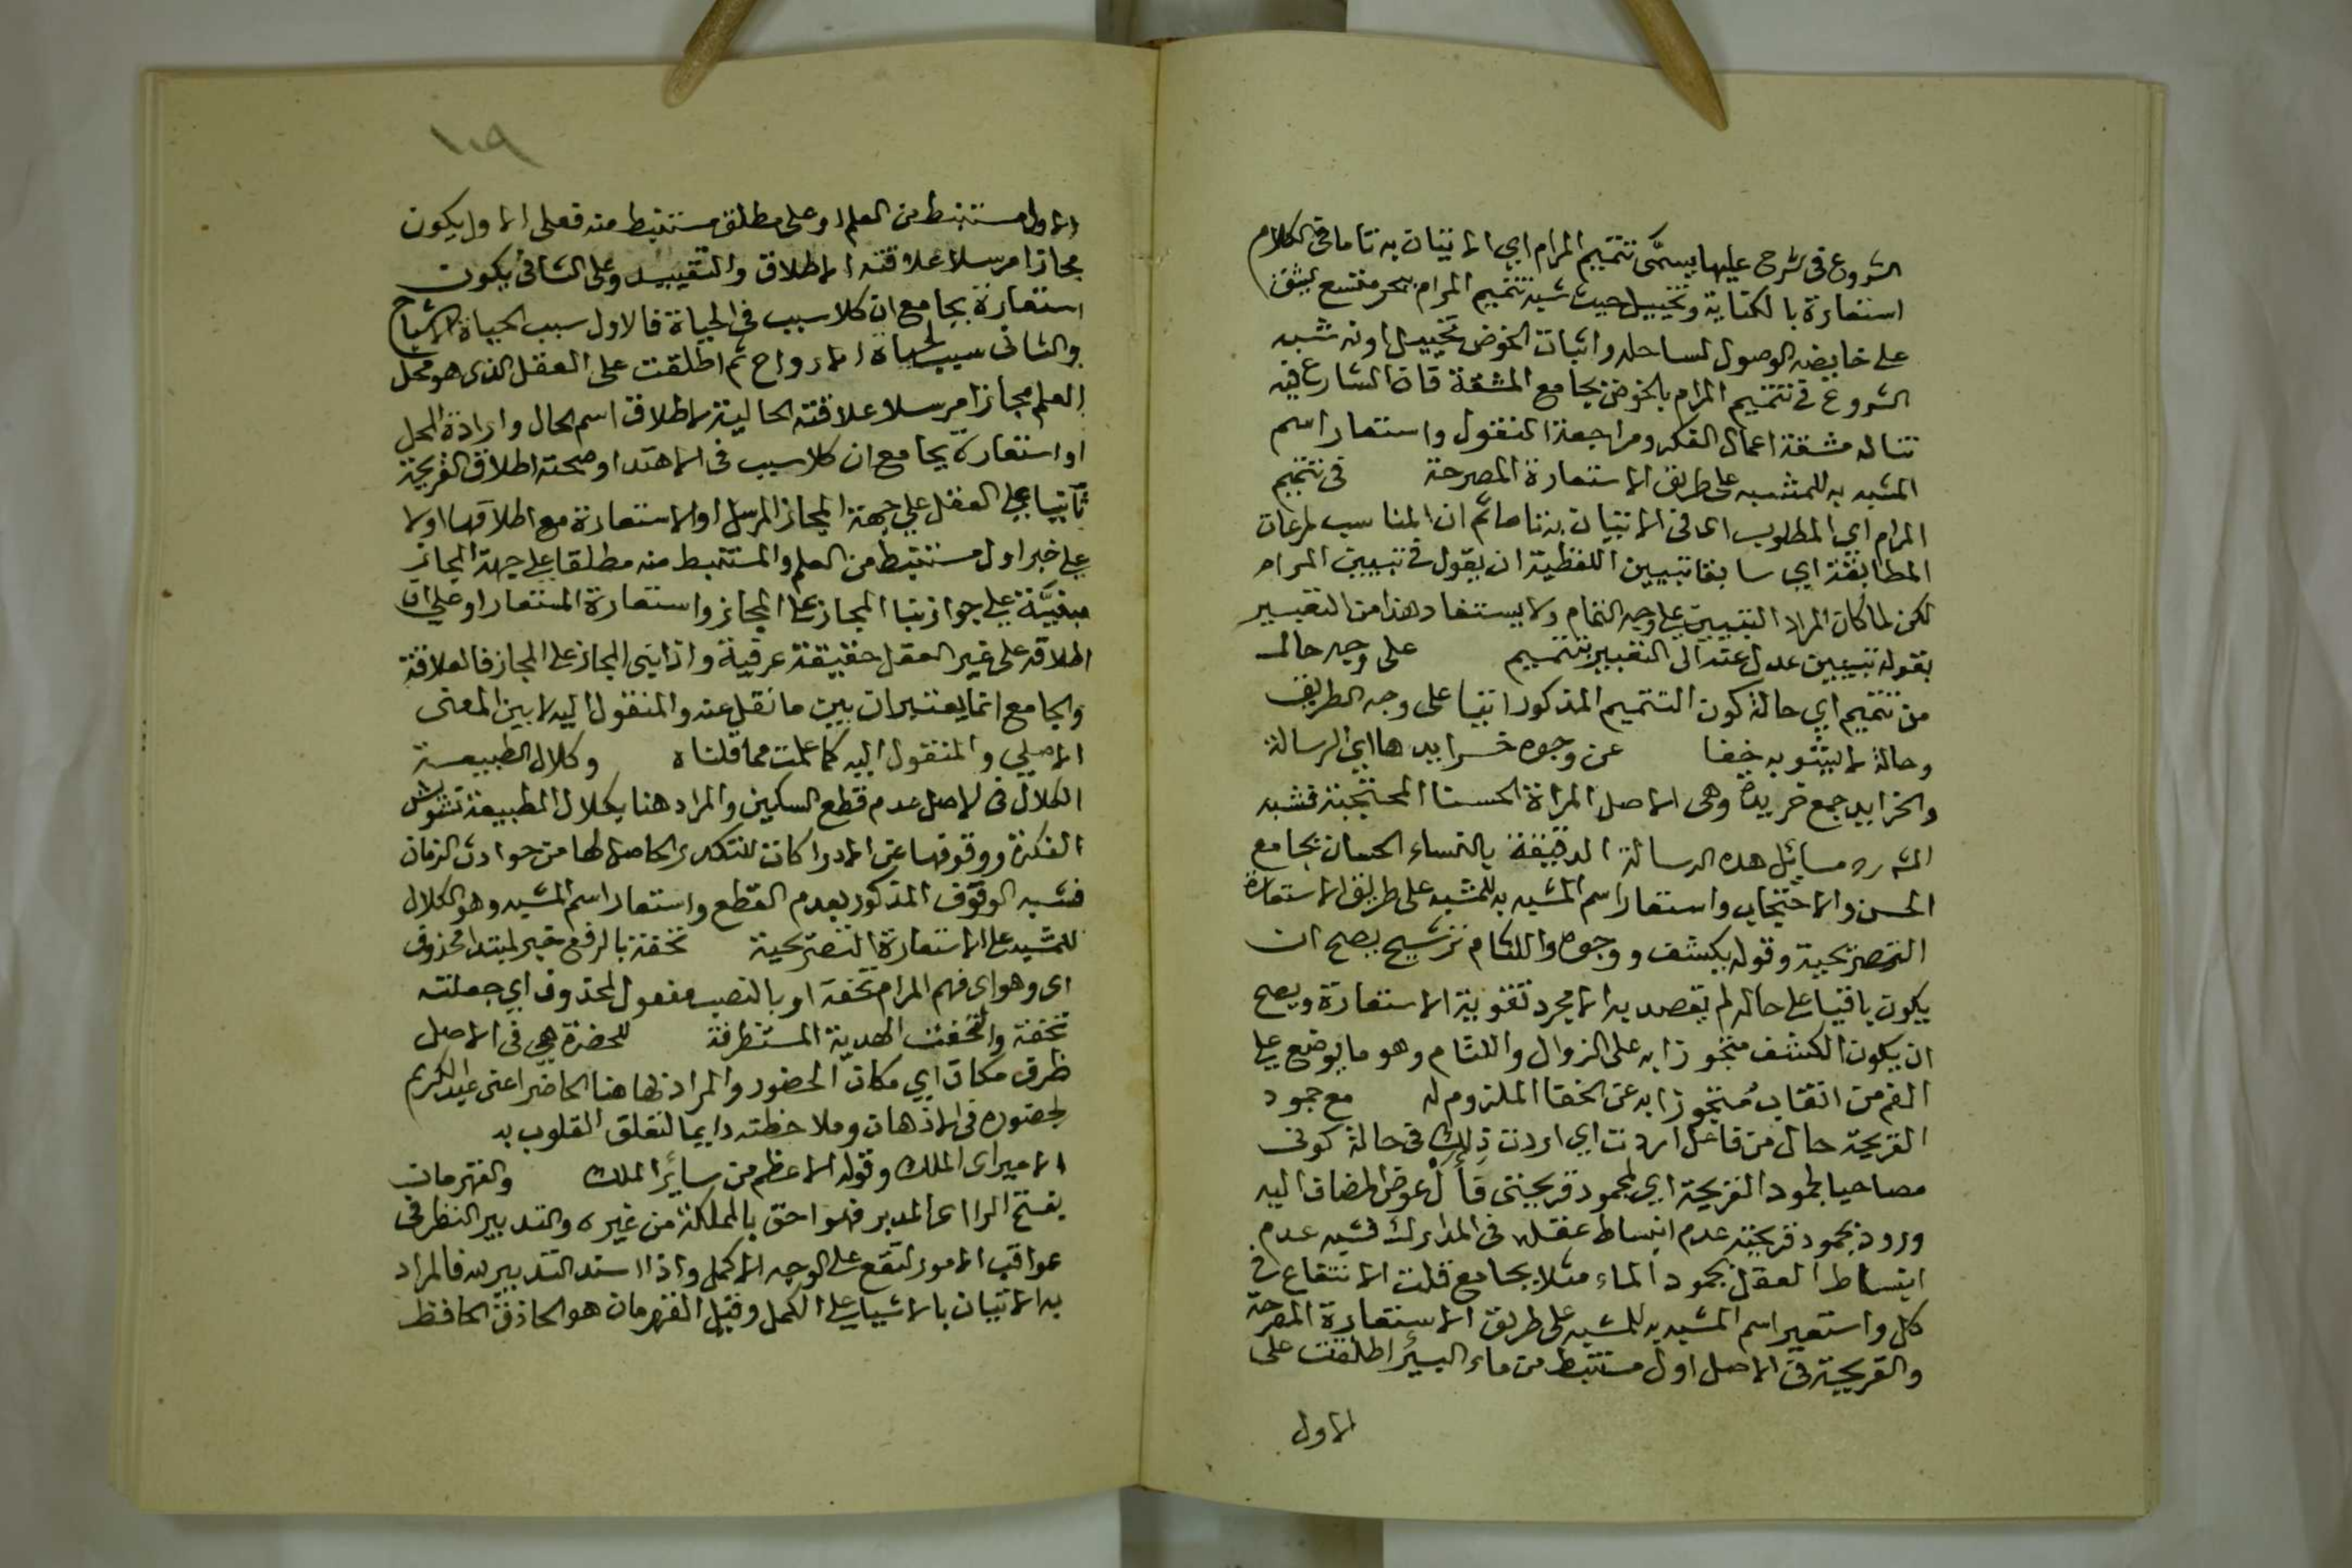 الشروع فى شرح عليها يسمَّى تتميم المرام اي الاتيان به تاما فى الكلام
استعارة بالكناية وتخييل حيث شبه تتميم المرام ببحر متسع يشق
على خايضه الوصول لساحله واثبات الخوض تخييل او نه شبه
الشروع فى تتميم المرام بالخوض بجامع المشقة فان الشارع فيه
تناله مشقة اعمال الفكر ومراجعة النقول واستعار اسم
المشبه به للمشبه على طريق الاستعارة المصرحة فى تتميم
المرام اي المطلوب اى فى الاتيان به تاما ثم ان المناسب لمرعات
المطابقة اي سابقا تبيين اللفظية ان يقول فى تبيين المرام
لكن لما كان المراد التبيين على وجه التمام ولا يستفاد هذا من التعبير
بقوله تبيين عدل عنه الى التعبير بتتميم على وجه حال
من تتميم اي حالة كون التتميم المذكور اتيا على وجه الطريق
وحالة لا يشوبه خفا عن وجوه خرايدها اي الرسالة
والخرايد جمع خريدة وهى الاصل المراة الحسنا المحتجبة فشبه
الشارح مسايل هذه الرسالة الدقيقة بالنساء الحسان بجامع
الحسن والاحتجاب واستعار اسم المشبه به للمشبه على طريق الاستعارة
التصريحية وقوله يكشف ووجوه واللثام ترشيح يصح ان
يكون باقيا على حاله لم يقصد به الا مجرد تقوية الاستعارة ويصح
ان يكون الكشف متجوزا به على الزوال واللثام وهو ما يوضع على
الفم من النقاب مُتجوزا به عن الخفا الملزوم له مع جمود
القريحة حال من فاعل اردت اي اردت ذلك فى حالة كونى
مصاحبا لجمود القريحة اي لجمود قريحتى فأل عوض المضاف اليه
وجمود قريحته عدم انبساط عقله فى المدارك فشبه عدم
انبساط العقل بجمود الماء مثلا بجامع قلت الانتفاع فى
كل واستعير اسم المشبه به للمشبه على طريق الاستعارة المصرحة
والقريحة فى الاصل اول مستنبط من ماء البيئر اطلقت على
الاول
١٠٩
الاول مستنبط من العلم او على مطلق مستنبط منه فعلى الاول يكون
مجازا مرسلا علاقته الاطلاق والتقييد وعلى الثانى يكون
استعارة بجامع ان كلا سبب فى الحياة فالاول سبب الحياة الاشباح
والثانى سبب لحياة الارواح ثم اطلقت على العقل الذى هو محل
العلم مجازا مرسلا علاقته الحالية لاطلاق اسم الحال وارادة المحل
او استعارة بجامع ان كلا سبب فى الاهتدا وصحته اطلاق القريحة
ثانيا على العقل على جهة المجاز المرسل او الاستعارة مع اطلاقها اولا
على خبر اول مستنبط من العلم والمستنبط منه مطلقا على جهة المجاز
مبنيَّة على جواز بنا المجاز على المجاز واستعارة المستعار او على ان
اطلاقه على غير العقل حقيقة عرفية واذا بنى المجاز على المجاز فالعلاقة
والجامع انما يعتبران بين ما نقل عنه والمنقول اليه لا بين المعنى
الاصلي والمنقول اليه كما علمت مما قلناه وكلال الطبيعة
الكلال فى الاصل عدم قطع السكين والمراد هنا بكلال الطبيعة تشوش
الفكرة ووقوفها عن الادراكات للتكدر الحاصل لها من حوادث الزمان
فشبه الوقوف المذكور بعدم القطع واستعار اسم المشبه وهو الكلال
للمشبه على الاستعارة التصريحية تحفة بالرفع خبر لمبتدا محذوف
اى وهو اى فهم المرام تحفة او بالنصب مفعول لمحذوف اي جعلته
تحفة والتحفت الهدية المستظرفة للحضرة هي فى الاصل
ظرف مكان اي مكان الحضور والمراد بها هنا الحاضر اعنى عبد الكريم
لحضوره فى الاذهان وملاحظته دايما لتعلق القلوب به
الامير اى الملك وقوله الاعظم من سايرُ الملك والقهرمان
بفتح الرا اى المدبر فهو احق بالمملكة من غيره والتدبير النظر فى
عواقب الامور لتقع على الوجه الاكمل واذا اسند التدبير لله فالمراد
به الاتيان بالاشيا على الكمل وقيل القهرمان هو الحاذق الحافظ